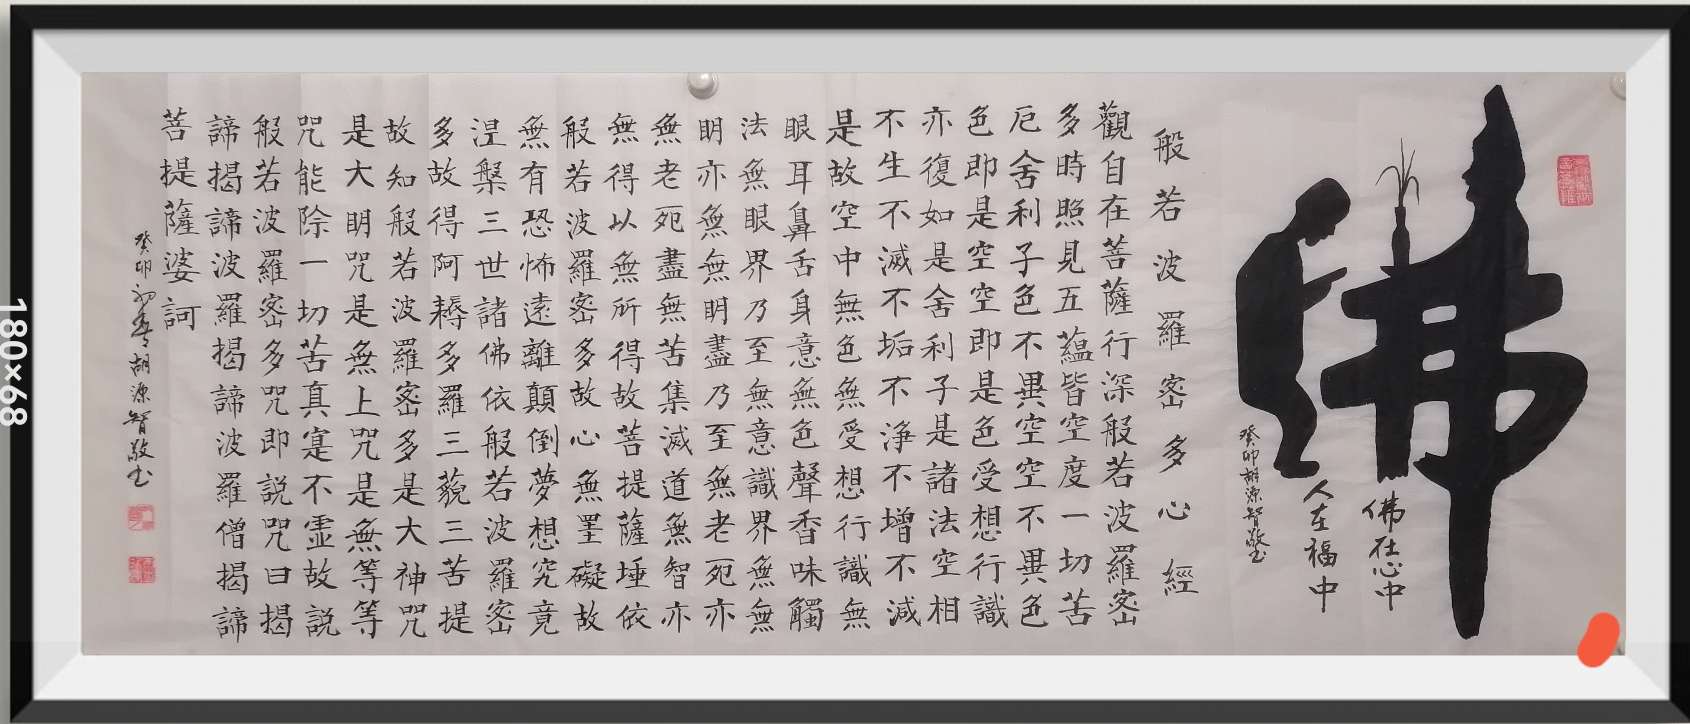 佛
佛在心中
人在福中
癸卯胡源智敬书
般若波羅密多心經
觀自在菩薩行深般若波羅密
多時照見五蘊皆空度一切苦
厄舍利子色不異空空不異色
色即是空空即是色受想行識
亦復如是舍利子是諸法空相
不生不滅不垢不净不增不減
是故空中無色無受想行識無
眼耳鼻舌身意無色聲香味觸
法無眼界乃至無意識界無無
明亦無無明盡乃至無老死亦
無老死盡無苦集滅道無智亦
無得以無所得故菩提薩埵依
般若波羅密多故心無罣礙故
無有恐怖遠離顛倒夢想究竟
涅槃三世諸佛依般若波羅密
多故得阿耨多羅三藐三菩提
故知般若波羅密多是大神咒
是大明咒是無上咒是無等等
咒能除一切苦真寔不虛故説
般若波羅密多咒即説咒曰揭
諦揭諦波羅揭諦波羅僧揭諦
菩提薩婆訶
癸卯初春胡源智敬书
180×68